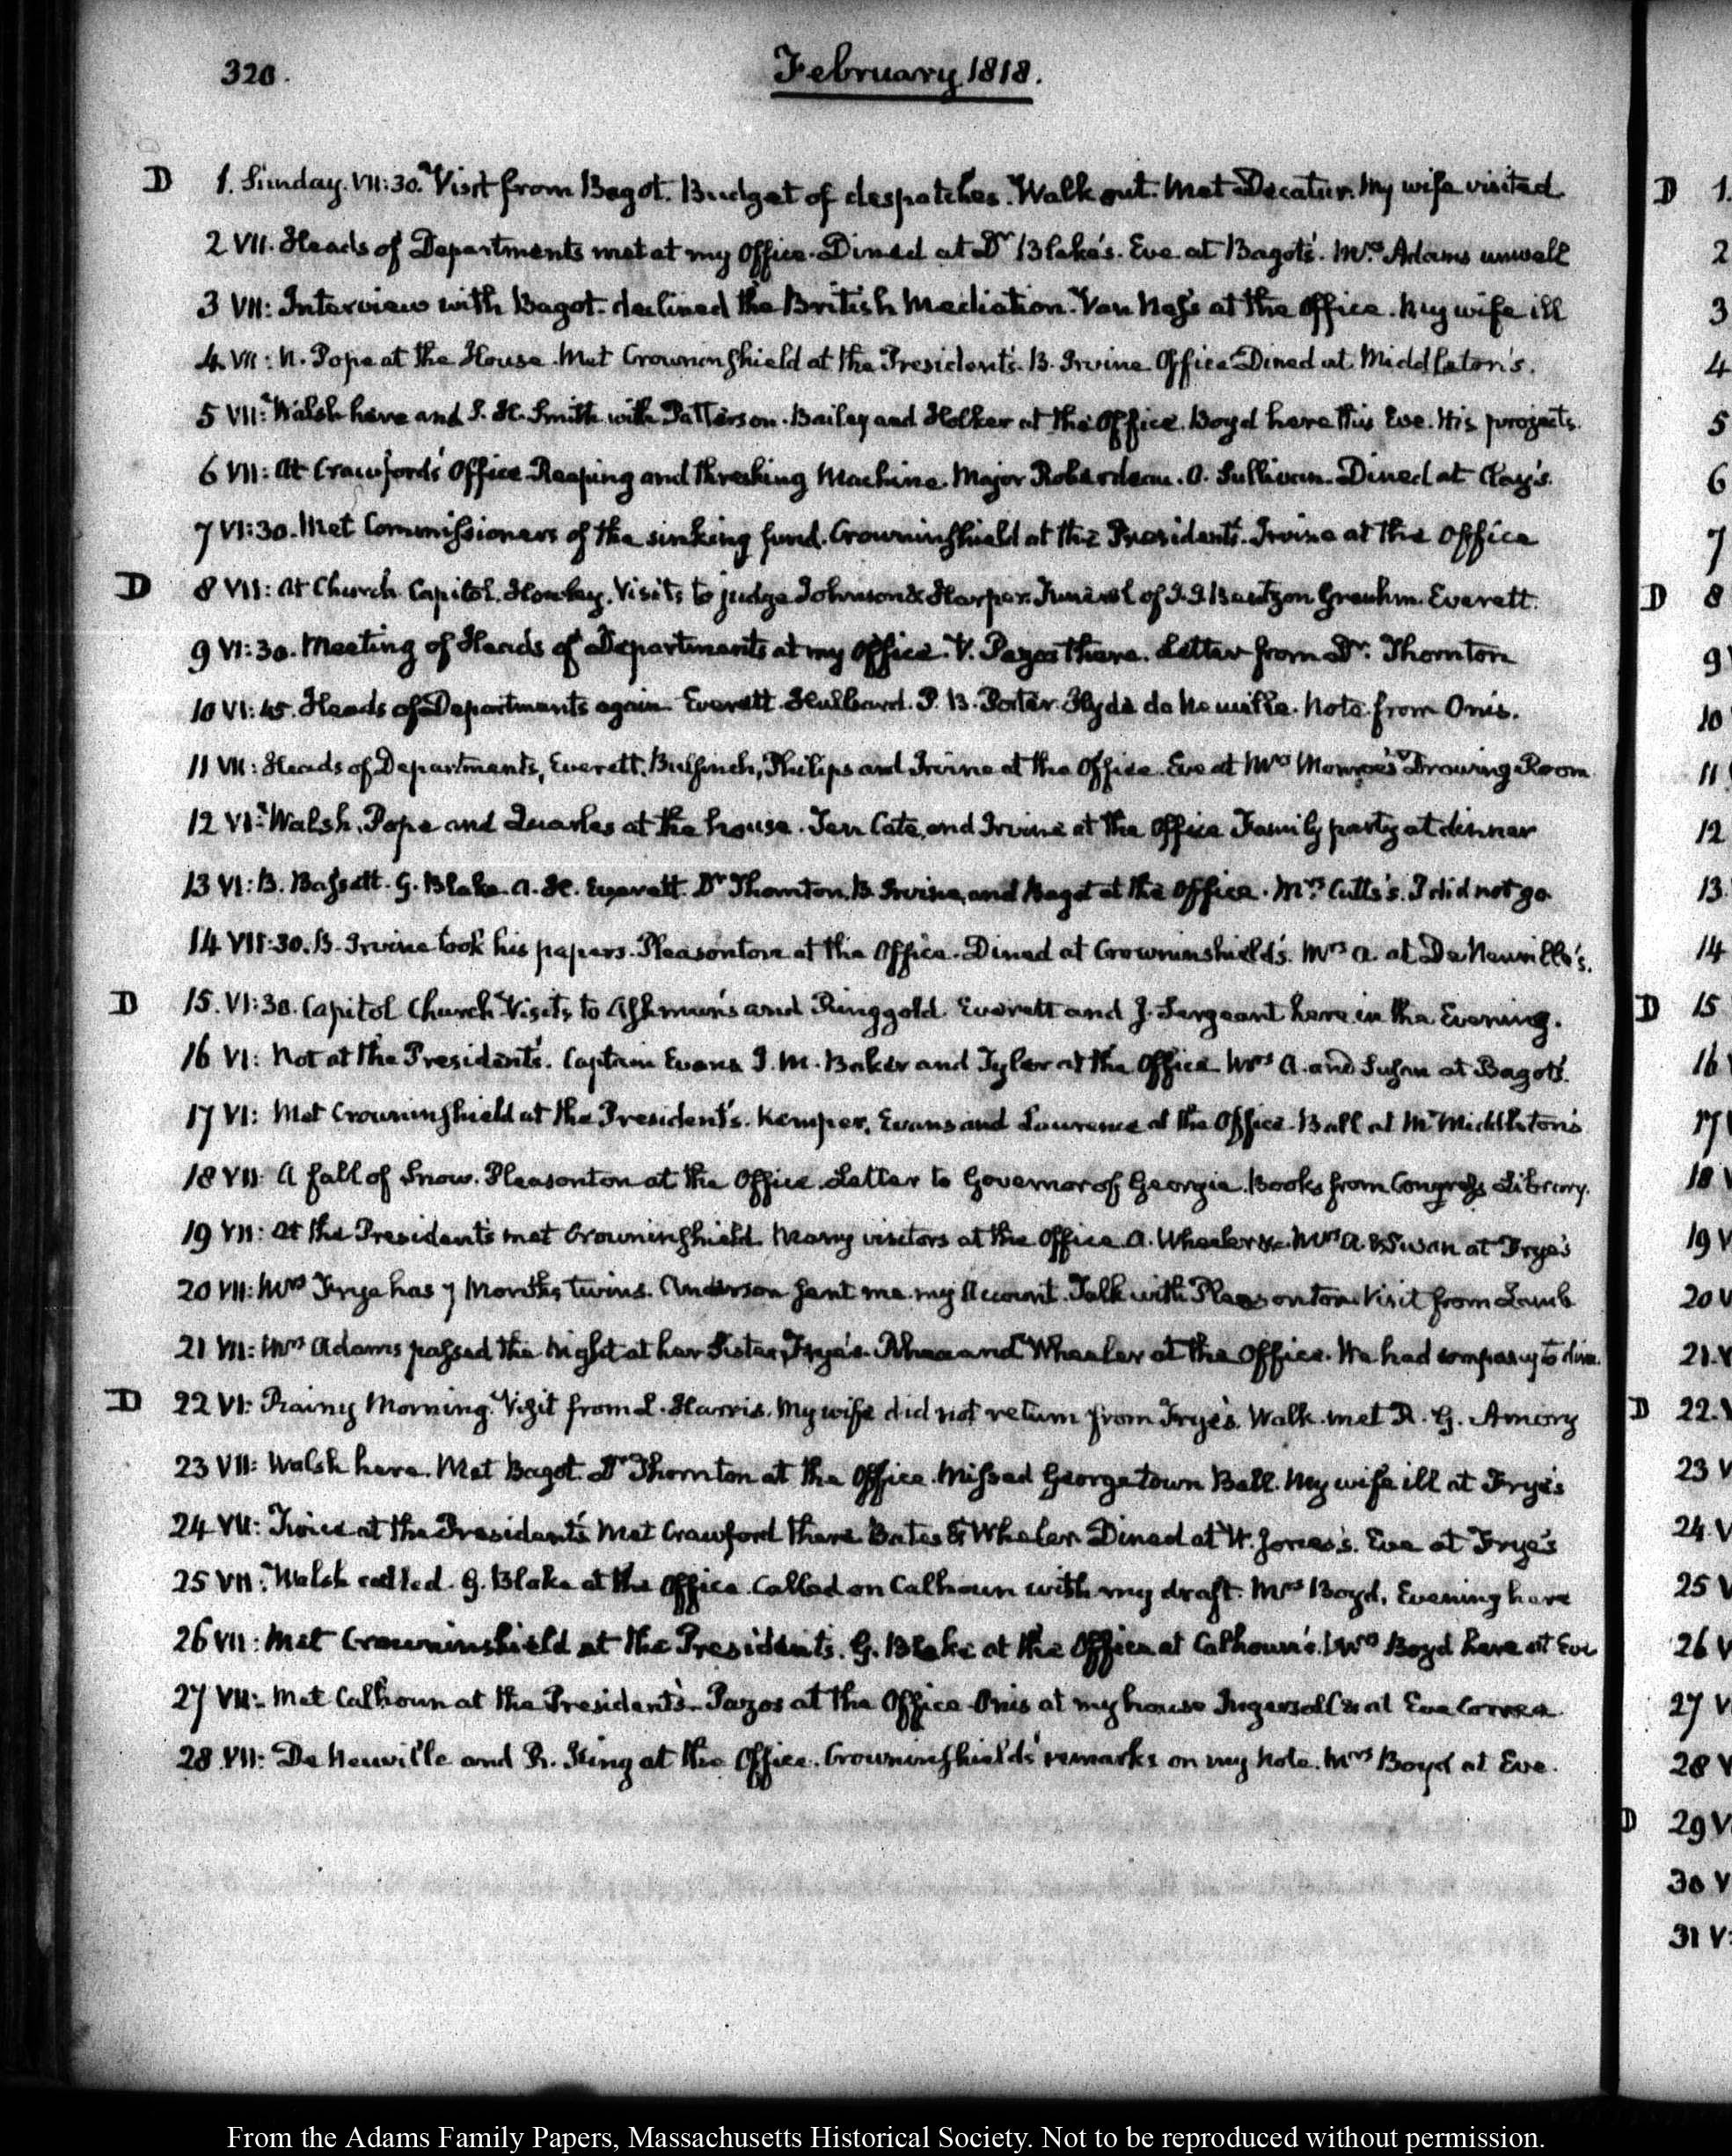 320.
February 1818.
D 1. Sunday. VII:30. Visit from Bagot. Budget of despatches. Walk out. Met Decatur. My wife visited
2 VII. Heads of Departments met at my Office. Dined at Dr Blake's. Eve at Bagot's. Mrs. Adams unwell
3 VII: Interview with Bagot. declined the British Mediation. Van Ness at the Office. My wife ill
4 VII: N. Pope at the House. Met Crowninshield at the President's. B. Irvine Office Dined at Middleton's.
5 VII: Walsh here and S. H. Smith with Patterson. Bailey and Holker at the Office. Boyd here this Eve. His projects.
6 VII: At Crawford's Office Reaping and threshing Machine. Major Roberdeau. O. Sullivan. Dined at Clay's.
7 VI:30. Met Commissioners of the sinking fund. Crowninshield at the President's. Irvine at the Office
D 8 VII: At Church Capitol. Howley. Visits to judge Johnson & Harper. Funeral of Greuhm. Everett.
9 VI:30. Meeting of Heads of Departments at my Office. V. Pazos there. Letter from Dr. Thornton
10 VI:45. Heads of Departments again. Everett. Hulbard. P. B. Porter. Hyde de Neuville. Note from Onis.
11 VII: Heads of Departments, Everett, Bulfinch, Philips and Irvine at the Office. Eve at Mrs Monroe's Drawing Room
12 VI: Walsh, Pope and Quarles at the house. Ten Cate, and Irvine at the Office Family party at dinner
13 VI: B. Bassett. G. Blake. A. H. Everett. Dr Thornton, B. Irvine, and Bagot at the Office. Mrs Cutts's. I did not go
14 VII:30. B. Irvine took his papers. Pleasonton at the Office. Dined at Crowninshield's. Mrs A. at De Neuville's.
D 15. VI:30. Capitol Church Visits to Ashmun's and Ringgold. Everett and J. Sergeant here in the Evening.
16 VI: Not at the President's. Captain Evans J. M. Baker and Tyler at the Office Mrs A. and Susan at Bagot's.
17 VI: Met Crowninshield at the President's. Kemper, Evans and Laurence at the Office. Ball at Mr Middleton's
18 VII: A fall of Snow. Pleasonton at the Office. Letter to Governor of Georgia. Books from Congress Library.
19 VII: At the President's met Crowninshield. Many visitors at the Office A. Wheeler &c. Mrs A. & Susan at Frye's
20 VII: Mrs Frye has 7 Months twins. Anderson sent me my Account. Talk with Pleasonton. Visit from Lamb
21 VII: Mrs Adams passed the Night at her Sister, Frye's. Rhea and Wheeler at the Office. We had company to dine.
D 22 VI: Rainy Morning. Visit from L. Harris. My wife did not return from Frye's. Walk. met R. G. Amory
23 VII: Walsh here. Met Bagot. Dr Thornton at the Office. Missed Georgetown Ball. My wife ill at Frye's
24 VII: Twice at the President's Met Crawford there Bates & Wheeler. Dined at W. Jones's. Eve at Frye's
25 VII: Walsh called. G. Blake at the Office. Called on Calhoun with my draft. Mrs Boyd, Evening here
26 VII: Met Crowninshield at the President's. G. Blake at the Office at Calhoun's. Mrs Boyd here at Eve
27 VII: Met Calhoun at the President's. Pazos at the Office Onis at my house Ingersoll & at Eve Correa
28 VII: De Neuville and R. King at the Office. Crowninshield's remarks on my Note. Mrs Boyd at Eve.
D 1.
2
3
4
5
6
7
D 8
9
10
11
12
13.
14
D 15
16
17
18
19
20
21.
D 22.
23
24
25
26
27
28
D 29
30
31
From the Adams Family Papers, Massachusetts Historical Society. Not to be reproduced without permission.